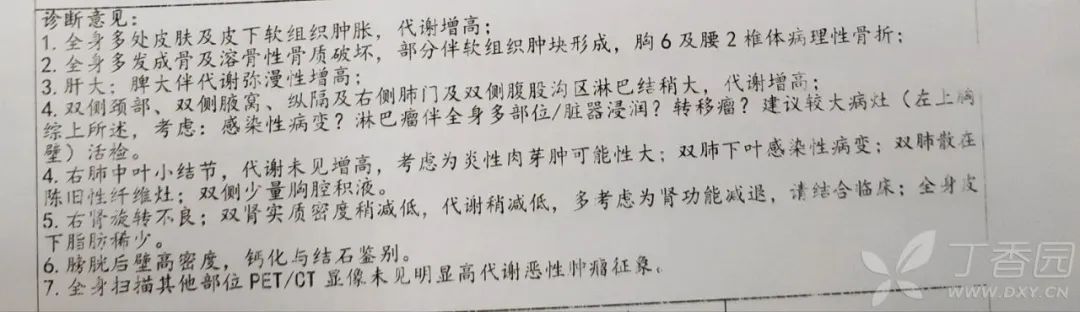 诊断意见:
1. 全身多处皮肤及皮下软组织肿胀，代谢增高；
2. 全身多发成骨及溶骨性骨质破坏，部分伴软组织肿块形成，胸6及腰2椎体病理性骨折；
3. 肝大；脾大伴代谢弥漫性增高；
4. 双侧颈部、双侧腋窝、纵隔及右侧肺门及双侧腹股沟区淋巴结稍大，代谢增高；
综上所述，考虑：感染性病变？淋巴瘤伴全身多部位/脏器浸润？转移瘤？建议较大病灶（左上胸
壁）活检。
4. 右肺中叶小结节，代谢未见增高，考虑为炎性肉芽肿可能性大；双肺下叶感染性病变；双肺散在
陈旧性纤维灶；双侧少量胸腔积液。
5. 右肾旋转不良；双肾实质密度稍减低，代谢稍减低，多考虑为肾功能减退，请结合临床；全身皮
下脂肪稀少。
6. 膀胱后壁高密度，钙化与结石鉴别。
7. 全身扫描其他部位PET/CT显像未见明显高代谢恶性肿瘤征象。
丁香园
WWW.DXY.CN